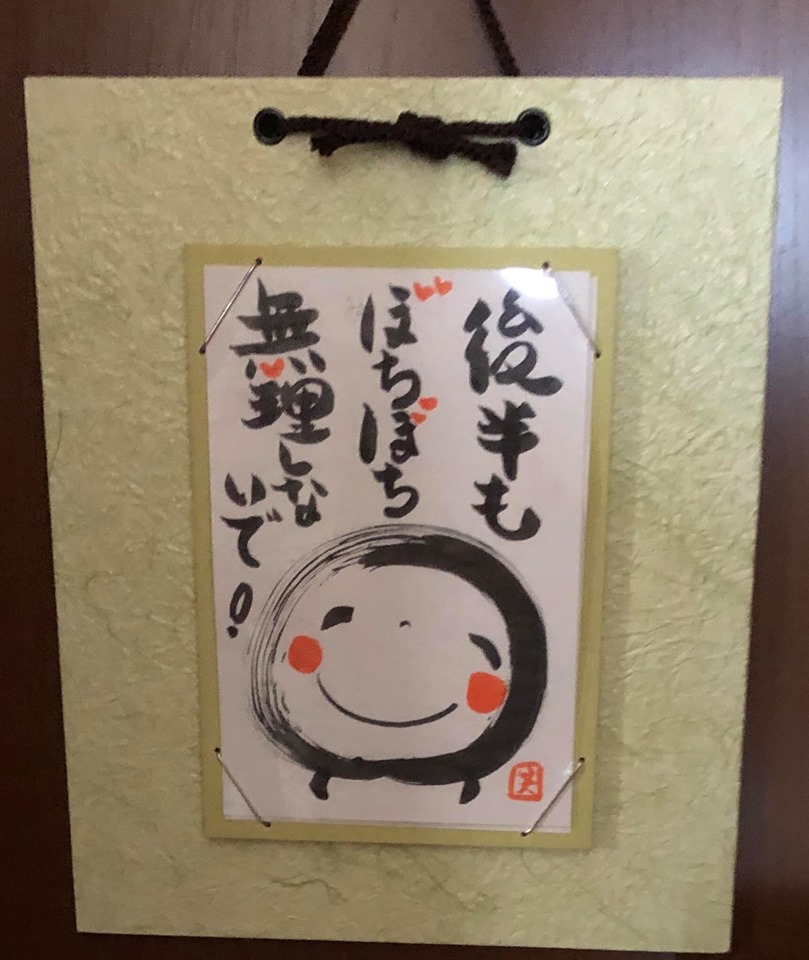 後半も
ぼちぼち
無理しな
いで!
笑